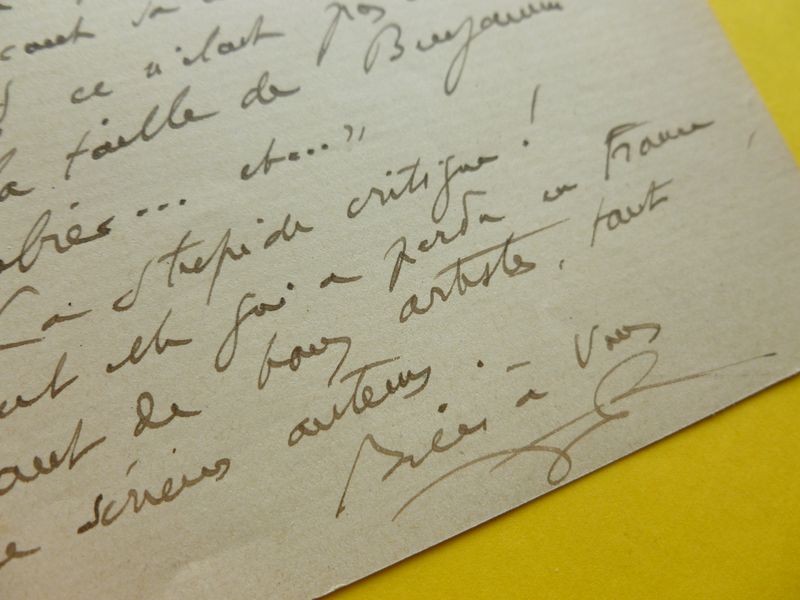 ce n'était pas
la taille de Benjamin
... et..."
La stupide critique !
est elle qui a perdu en France
tant de bons artistes, tant
de sérieux auteurs. -
Bien à vous